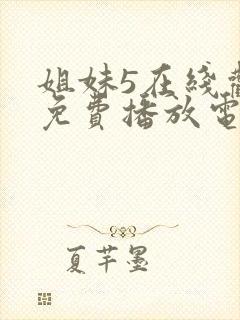 姐妹5在线
免費播放電
夏芊墨